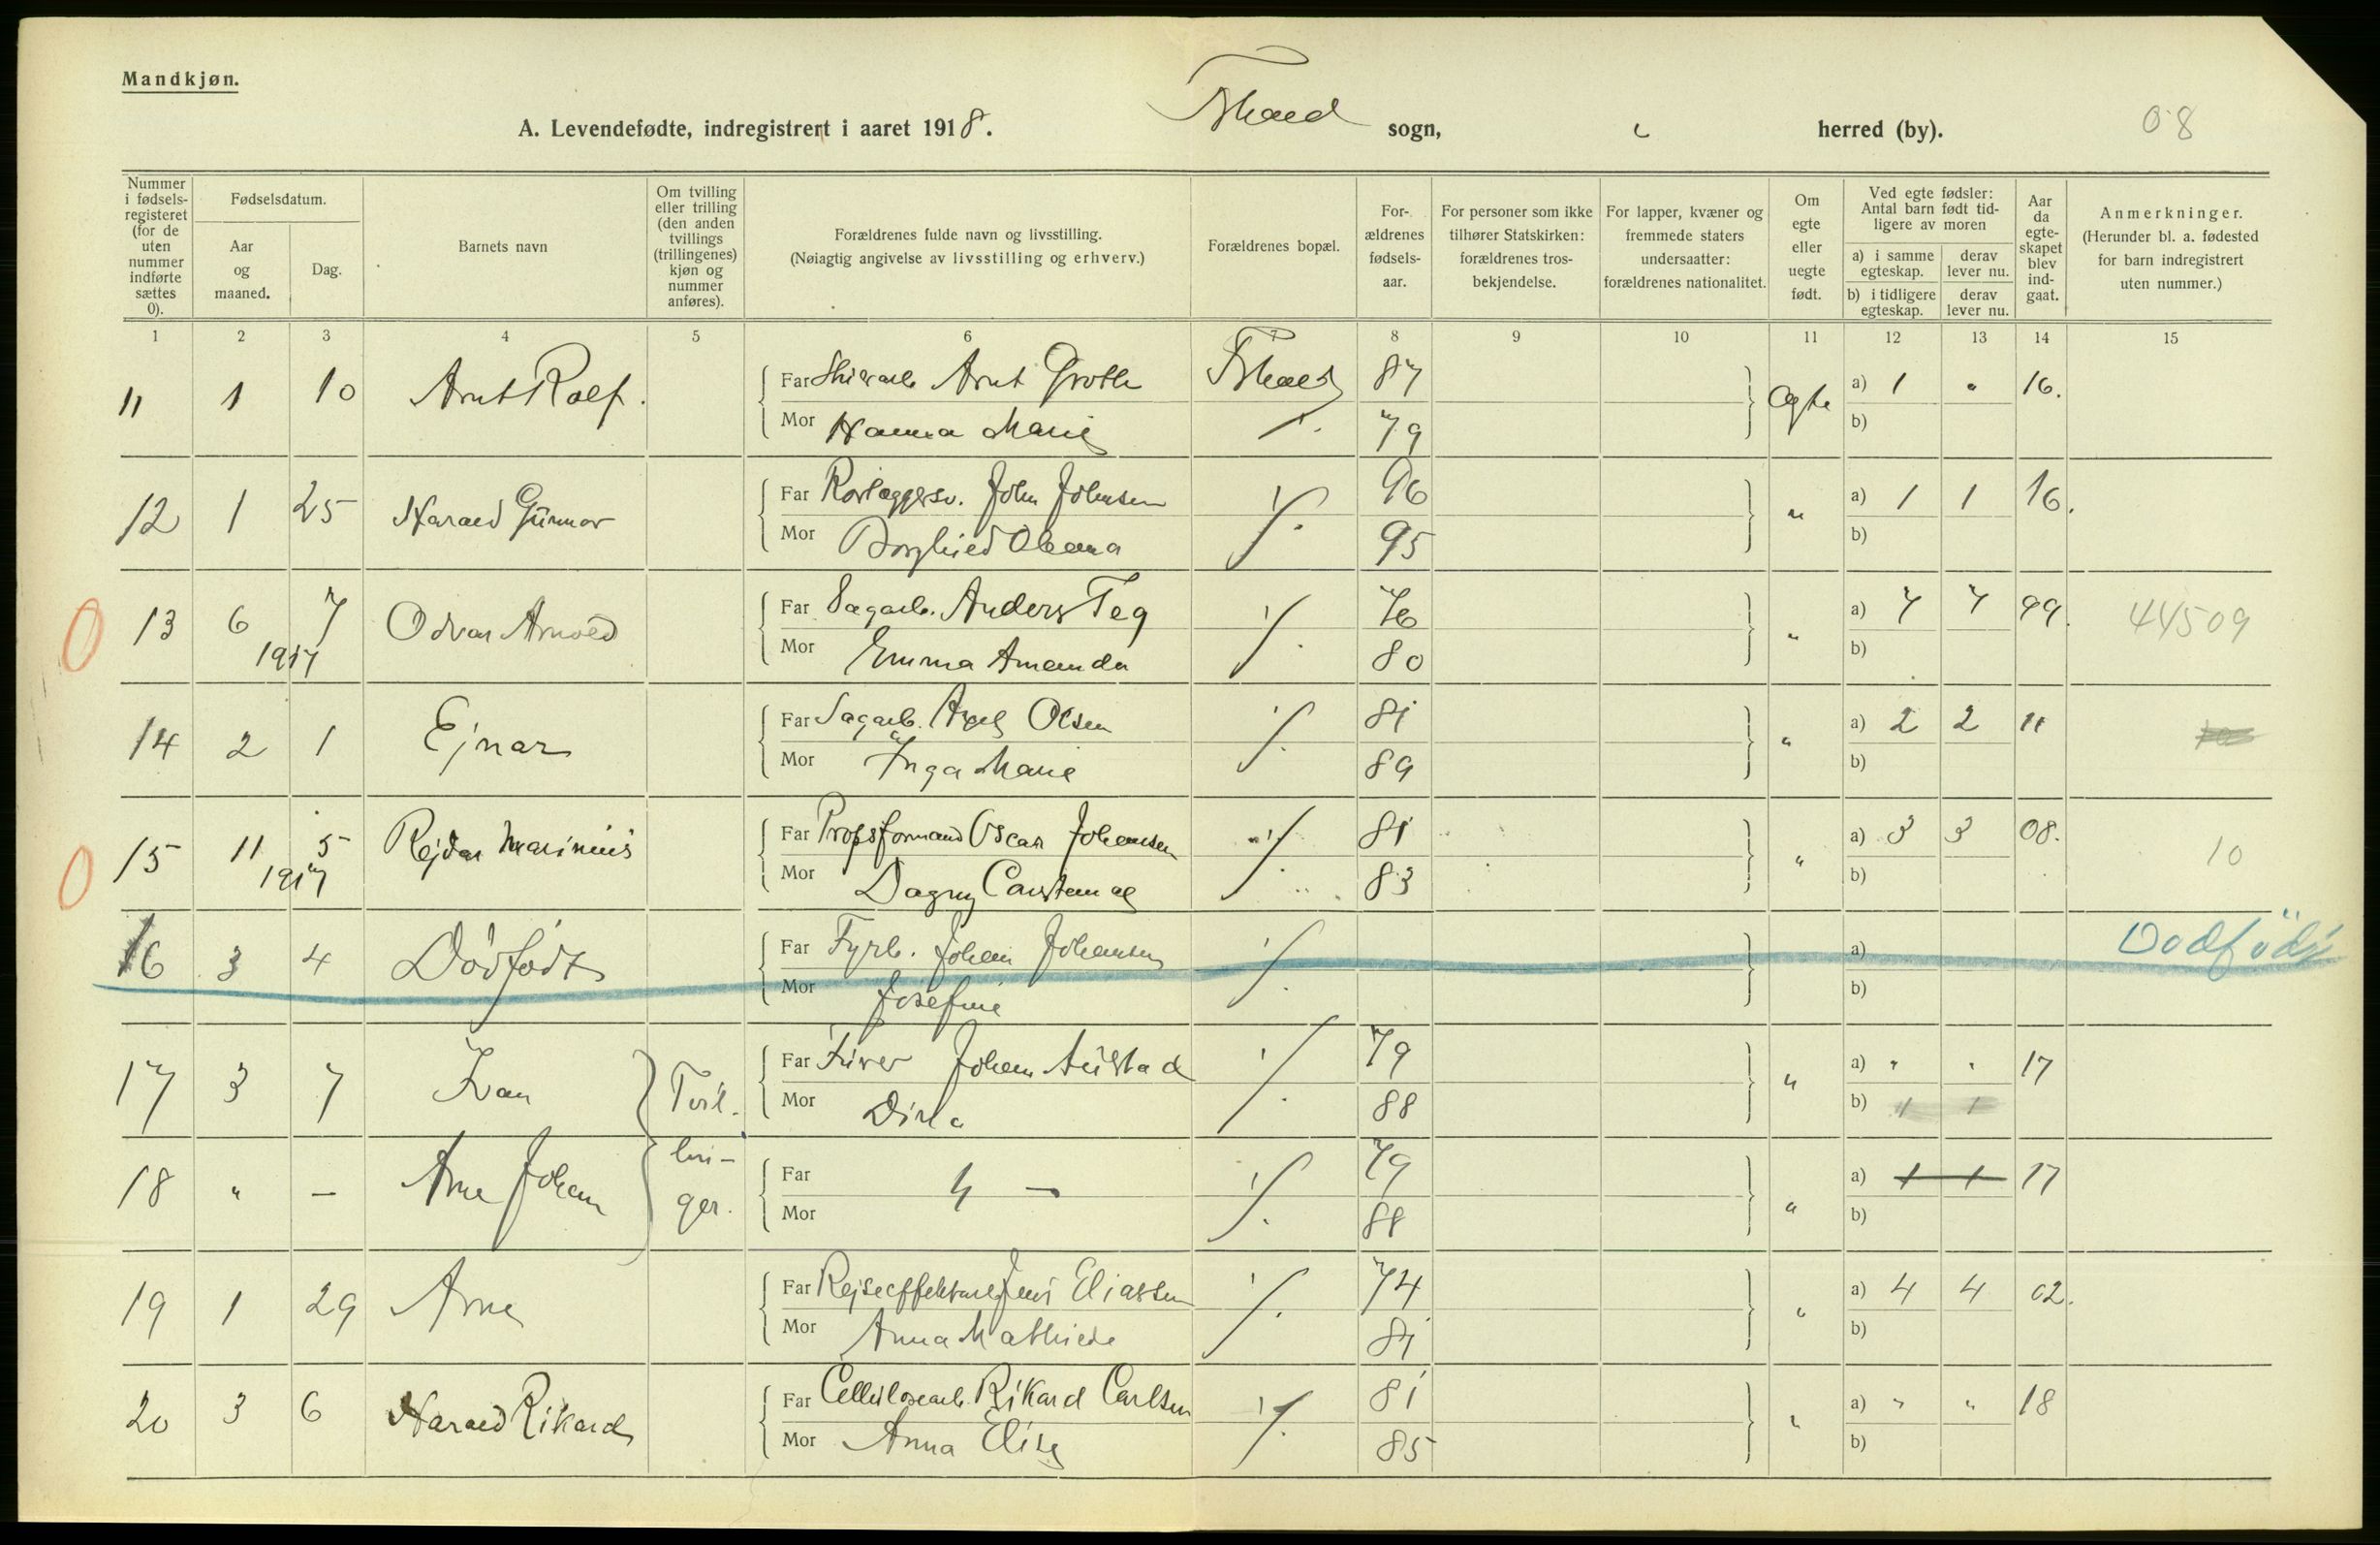 Mandkjøn.
A. Levendefødte, indregistrert i aaret 1918. sogn, herred (by). 08
Nummer i fødsels-registeret (for de uten nummer indførte sættes 0).
Fødselsdatum.
Aar og maaned.
Dag.
Barnets navn
Om tvilling eller trilling (den anden tvillings (trillingenes) kjøn og nummer anføres).
Forældrenes fulde navn og livsstilling.
(Nøiagtig angivelse av livsstilling og erhverv.)
Forældrenes bopæl.
For-ældrenes fødsels-aar.
For personer som ikke tilhører Statskirken: forældrenes tros-bekjendelse.
For lapper, kvæner og fremmede staters undersaatter: forældrenes nationalitet.
Om egte eller uegte født.
Ved egte fødsler: Antal barn født tid-ligere av moren
a) i samme egteskap. derav lever nu.
b) i tidligere egteskap. derav lever nu.
Aar da egte-skapet blev ind-gaat.
Anmerkninger.
(Herunder bl. a. fødested for barn indregistrert uten nummer.)
1 2 3 4 5 6 7 8 9 10 11 12 13 14 15
11 1 10 Arnt Rolf. Far Arnt Grotle 87 Egte a) 1 " 16.
Mor Hanna Marie 79 b)
12 1 25 Harald Gunnar Far Rørlæggersv. John Johnsen 96 " a) 1 1 16.
Mor Borghild Oleana 95 b)
0 13 6 7 Odvar Arnold Far Sagarb. Anders Teg 76 " a) 7 7 99. 44509
1917 Mor Emma Amanda 80 b)
14 2 1 Ejnar Far Sagarb. Axel Olsen 81 " a) 2 2 11
Mor Inga Marie 89 b)
0 15 11 5 Rejdar Marinius Far Propsformand Oscar Johansen 81 " a) 3 3 08. 10
1917 Mor Dagny 83 b)
16 3 4 Dødfødt Far Fyrb. Johan Johansen a) Dødfødt
Mor Josefine b)
17 3 7 Ivan Tvil- Far Johan Austad 79 " a) " " 17
Mor 88 b) 1 1
18 " — Arne Johan lin-ger. Far " — 79 " a) 1 1 17
Mor 88 b)
19 1 29 Arne Far Jens Eliassen 74 " a) 4 4 02.
Mor Anna Mathilde 81 b)
20 3 6 Harald Rikard Far Cellulosearb. Rikard Carlsen 81 " a) " " 18
Mor Anna Elise 85 b)